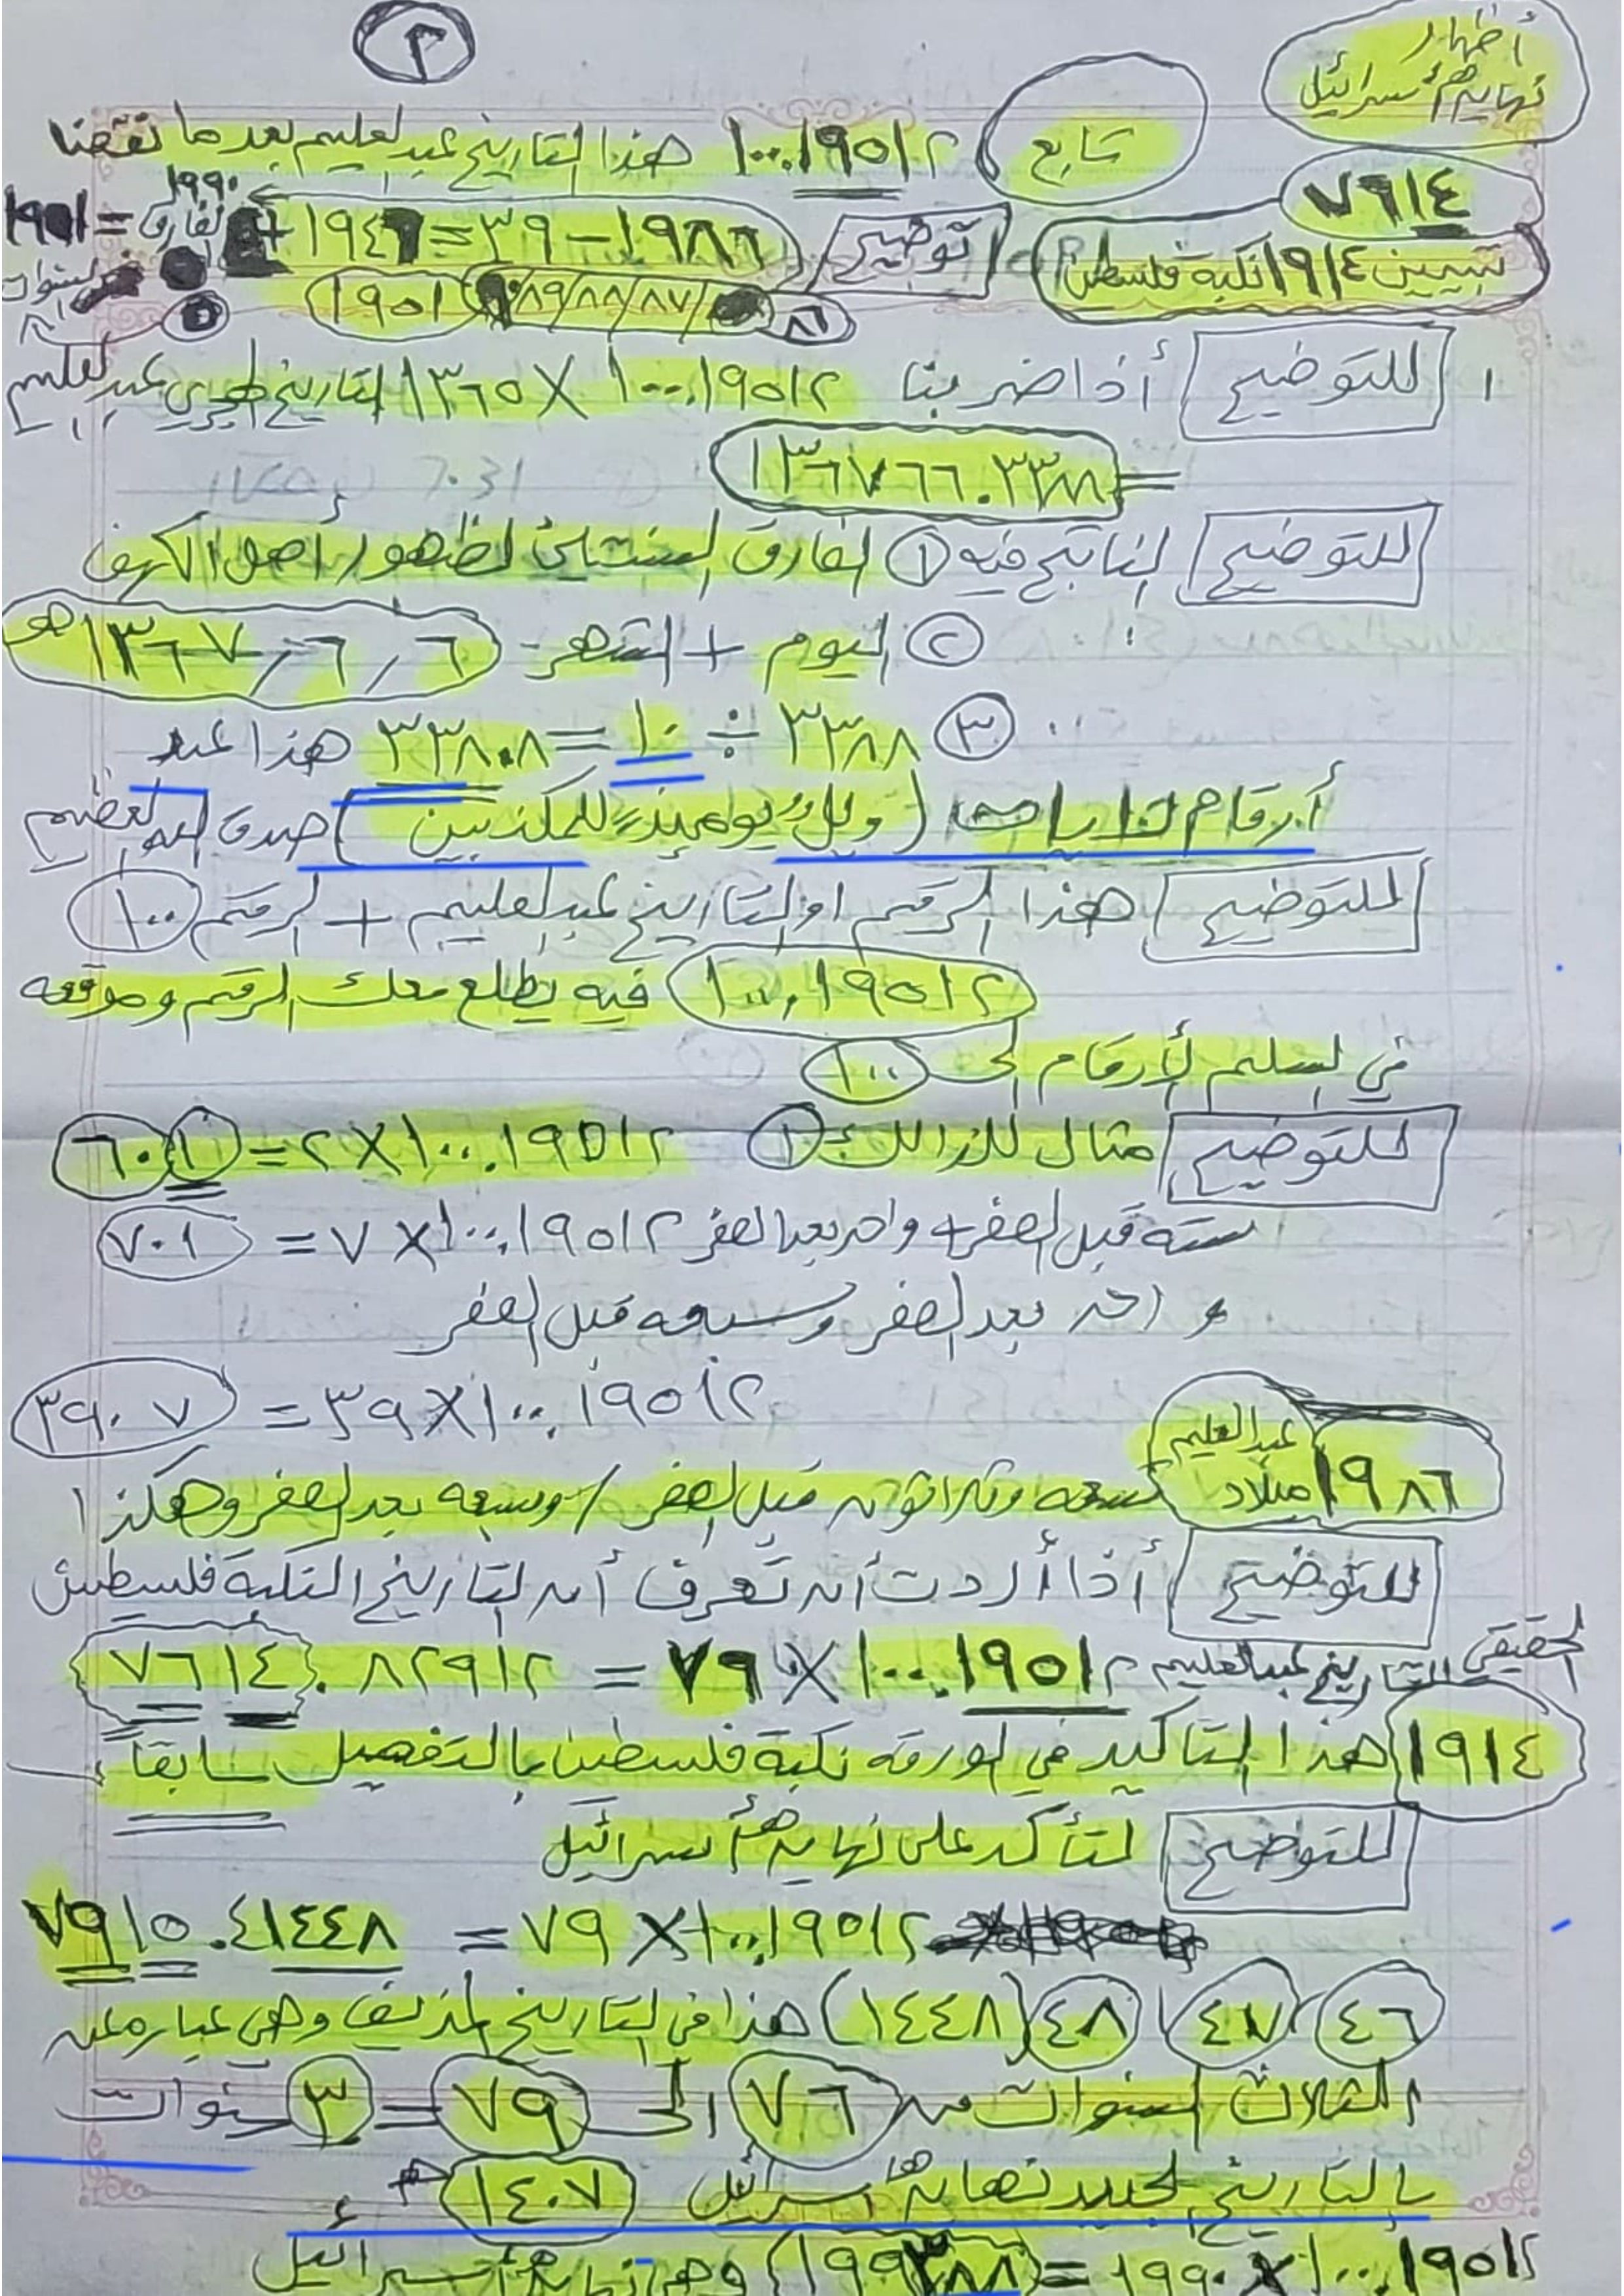 ٢
أظهار
نهاية إسرائيل
تابع ١٠٠.١٩٥١٢ هذا التاريخ عبد العليم بعد ما نقصنا
٧٦١٤
١٩٩٠
تبيين ١٩١٤ نكبة فلسطين
توضيح ١٩٨٦ – ٣٩ = ١٩٤٧ + الفارق =
٨٦ /٨٧/٨٨/٨٩ ١٩٥١ ٥
١ للتوضيح أذا ضربنا ١٠٠.١٩٥١٢ × ١٣٦٥ التاريخ الهجري عبد العليم
= ١٣٦٧٦٦.٣٣٨٨
للتوضيح الناتج فيه ١ الفارق السنتين لظهور أصحاب الكهف
٢ اليوم + الشهر ٦ / ٦ / ١٣٦٧ هـ
٣ ٣٣٨٨ ÷ ١٠ = ٣٣٨.٨ هذا عبد
أرقام الايات (ويل يومئذ للمكذبين) صدق الله العظيم
للتوضيح هذا الرقم او التاريخ عبد العليم + الرقم ١٠٠
١٠٠.١٩٥١٢ فيه يطلع معك الرقم وموقعه
في السلم لأرقام الـ ١٠٠
للتوضيح مثال لذالك ١ ١٠٠.١٩٥١٢ × ٢ = ٦٠١
سته قبل الصفر + واحد بعد الصفر ١٠٠.١٩٥١٢ × ٧ = ٧٠١
واحد بعد الصفر وسبعه قبل الصفر
١٠٠.١٩٥١٢ × ٣٩ = ٣٩٠٧
عبد العليم
ميلاد ١٩٨٦ تسعه وثلاثون قبل الصفر / وسبعه بعد الصفر وهكذا
للتوضيح أذا أردت أن تعرف أن التاريخ النكبة فلسطين
الحقيقي التاريخ عبد العليم ١٠٠.١٩٥١٢ × ٧٦ = ٧٦١٤.٨٢٩١٢
١٩١٤ هذا التأكيد في الورقه نكبة فلسطين بالتفصيل سابقاً
للتوضيح لتأكد على نهاية إسرائيل
١٠٠.١٩٥١٢ × ٧٩ = ٧٩١٥.٤١٤٤٨
٤٦ / ٤٧ / ٤٨ (١٤٤٨) هذا في التاريخ المزيف وهي عباره عن
الثلاث السنوات من ٧٦ الى ٧٩ = ٣ سنوات
بالتاريخ الجديد نهاية إسرائيل ١٤٠٧ هـ
١٠٠.١٩٥١٢ × ١٩٩٠ = وهي نهاية إسرائيل